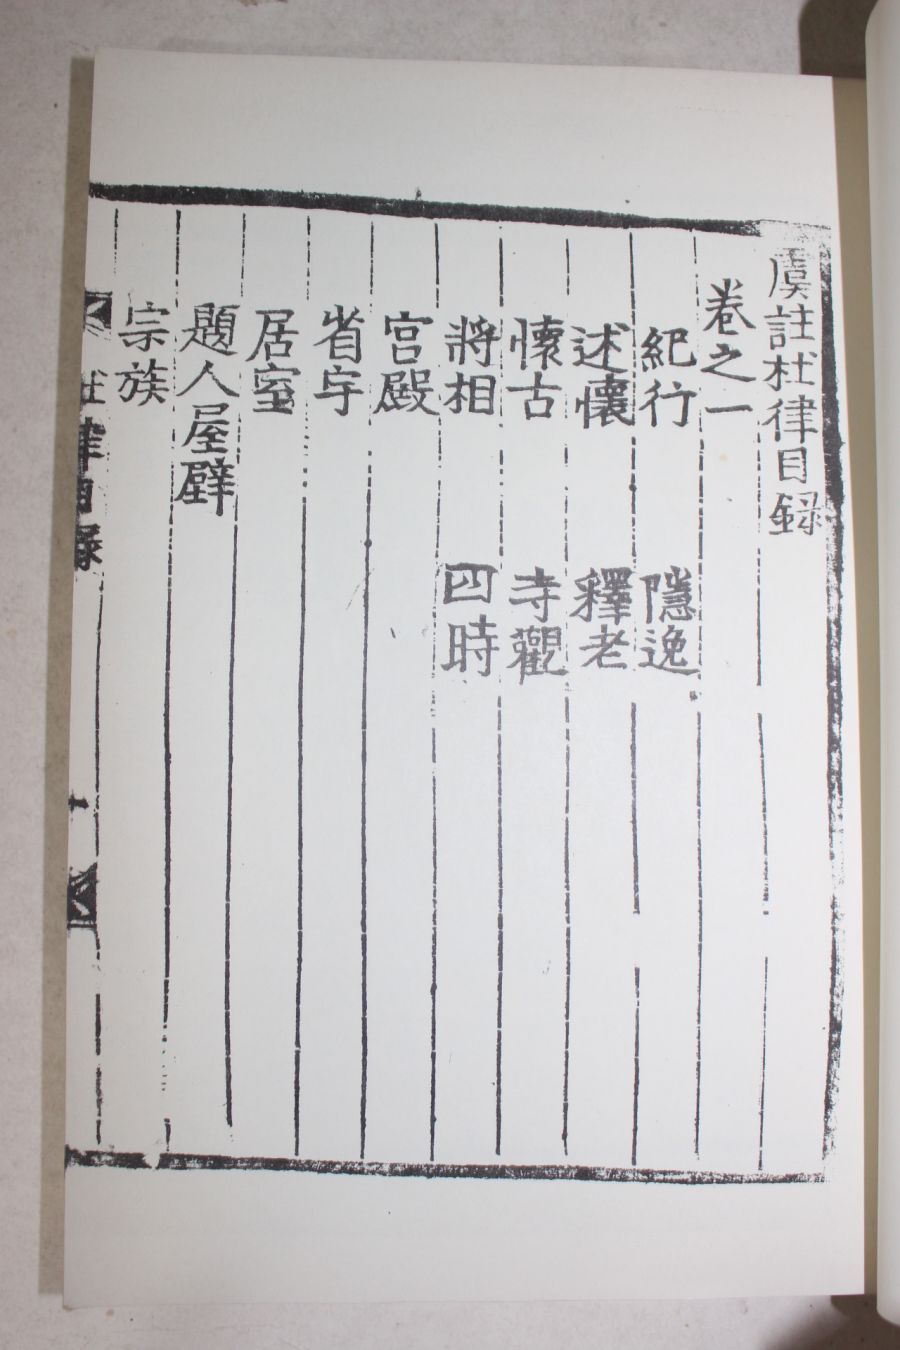 虞註杜律目録
卷之一
紀行 隱逸
述懷 釋老
懷古 寺觀
將相 四時
宮殿
省宇
居室
題人屋壁
宗族
註律目録